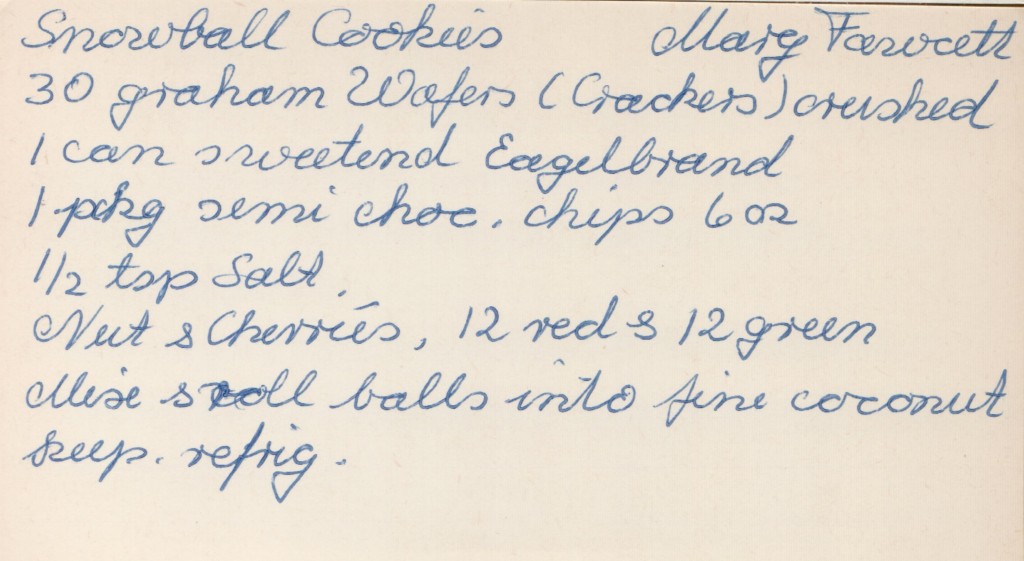 Snowball Cookies Marg Fawcett
30 graham Wafers (Crackers) crushed
1 can sweetend Eagelbrand
1 pkg semi choc. chips 6 oz
1/2 tsp Salt.
Nut & Cherries, 12 red & 12 green
Mixe & roll balls into fine coconut
keep. refrig.